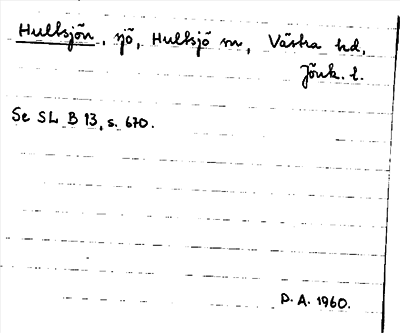 Hultsjön, sjö, Hultsjö sn, Västra hd,
Jönk. l.
Se SL B 13, s. 670.
P. A. 1960.